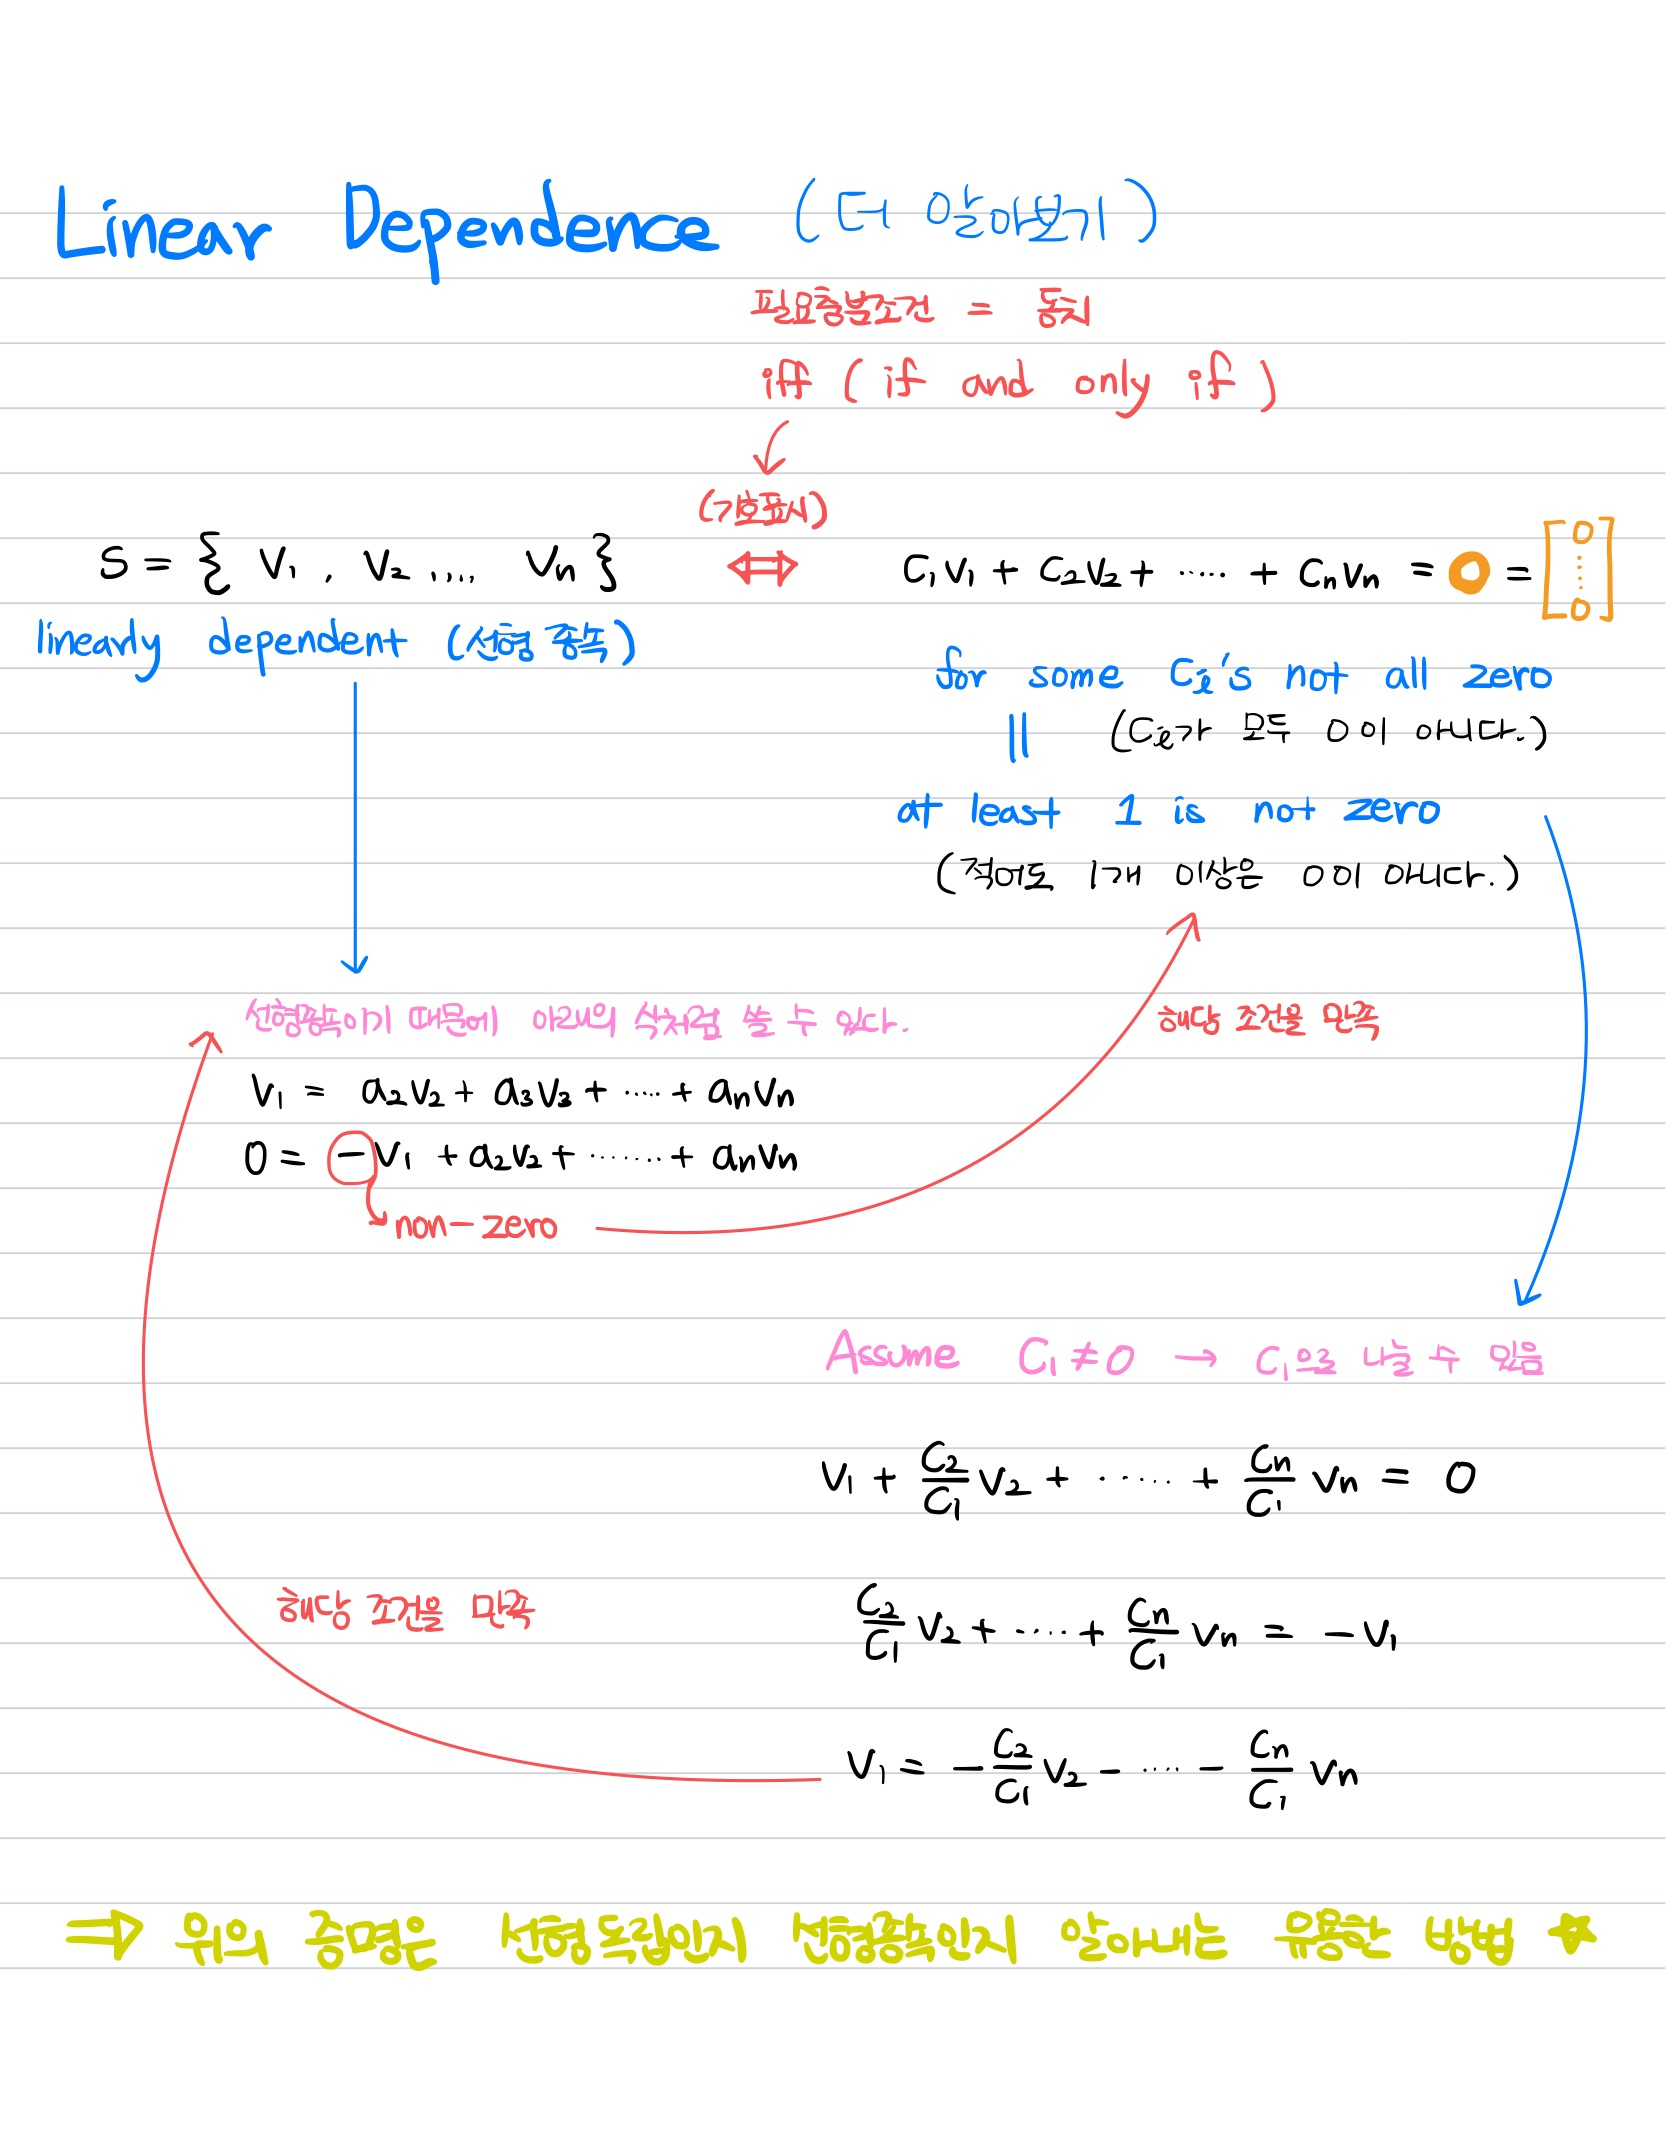 Linear Dependence (더 알아보기)
필요충분조건 = 동치
iff (if and only if)
(기호표시)
S = { V₁, V₂ ,,,, Vₙ } ⇔ C₁V₁ + C₂V₂ + ..... + CₙVₙ = 0 = [0 ⋮ 0]
linearly dependent (선형 종속)
for some Cᵢ's not all zero
|| (Cᵢ가 모두 0이 아니다.)
at least 1 is not zero
(적어도 1개 이상은 0이 아니다.)
선형종속이기 때문에 아래의 식처럼 쓸 수 있다.
해당 조건을 만족
V₁ = a₂V₂ + a₃V₃ + ..... + aₙVₙ
0 = -V₁ + a₂V₂ + ....... + aₙVₙ
non-zero
Assume C₁ ≠ 0 → C₁으로 나눌 수 있음
V₁ + C₂/C₁ V₂ + ..... + Cₙ/C₁ Vₙ = 0
해당 조건을 만족
C₂/C₁ V₂ + ..... + Cₙ/C₁ Vₙ = -V₁
V₁ = -C₂/C₁ V₂ - ..... - Cₙ/C₁ Vₙ
⇒ 위의 증명은 선형독립인지 선형종속인지 알아내는 유용한 방법 ☆